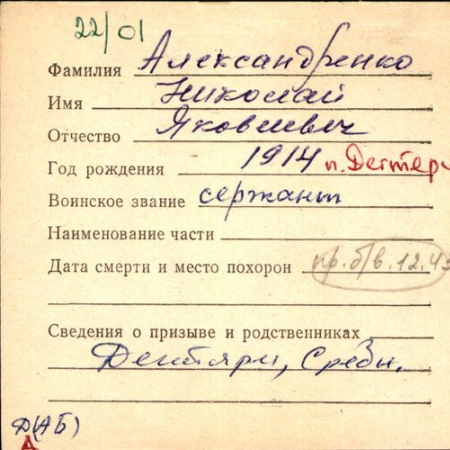 22/01
Фамилия Александренко
Имя Николай
Отчество Яковлевич
Год рождения 1914 п. Дегтяр
Воинское звание сержант
Наименование части
Дата смерти и место похорон пр. б/в. 12.43
Сведения о призыве и родственниках
Дегтяри, Сребн.
Д(АБ)